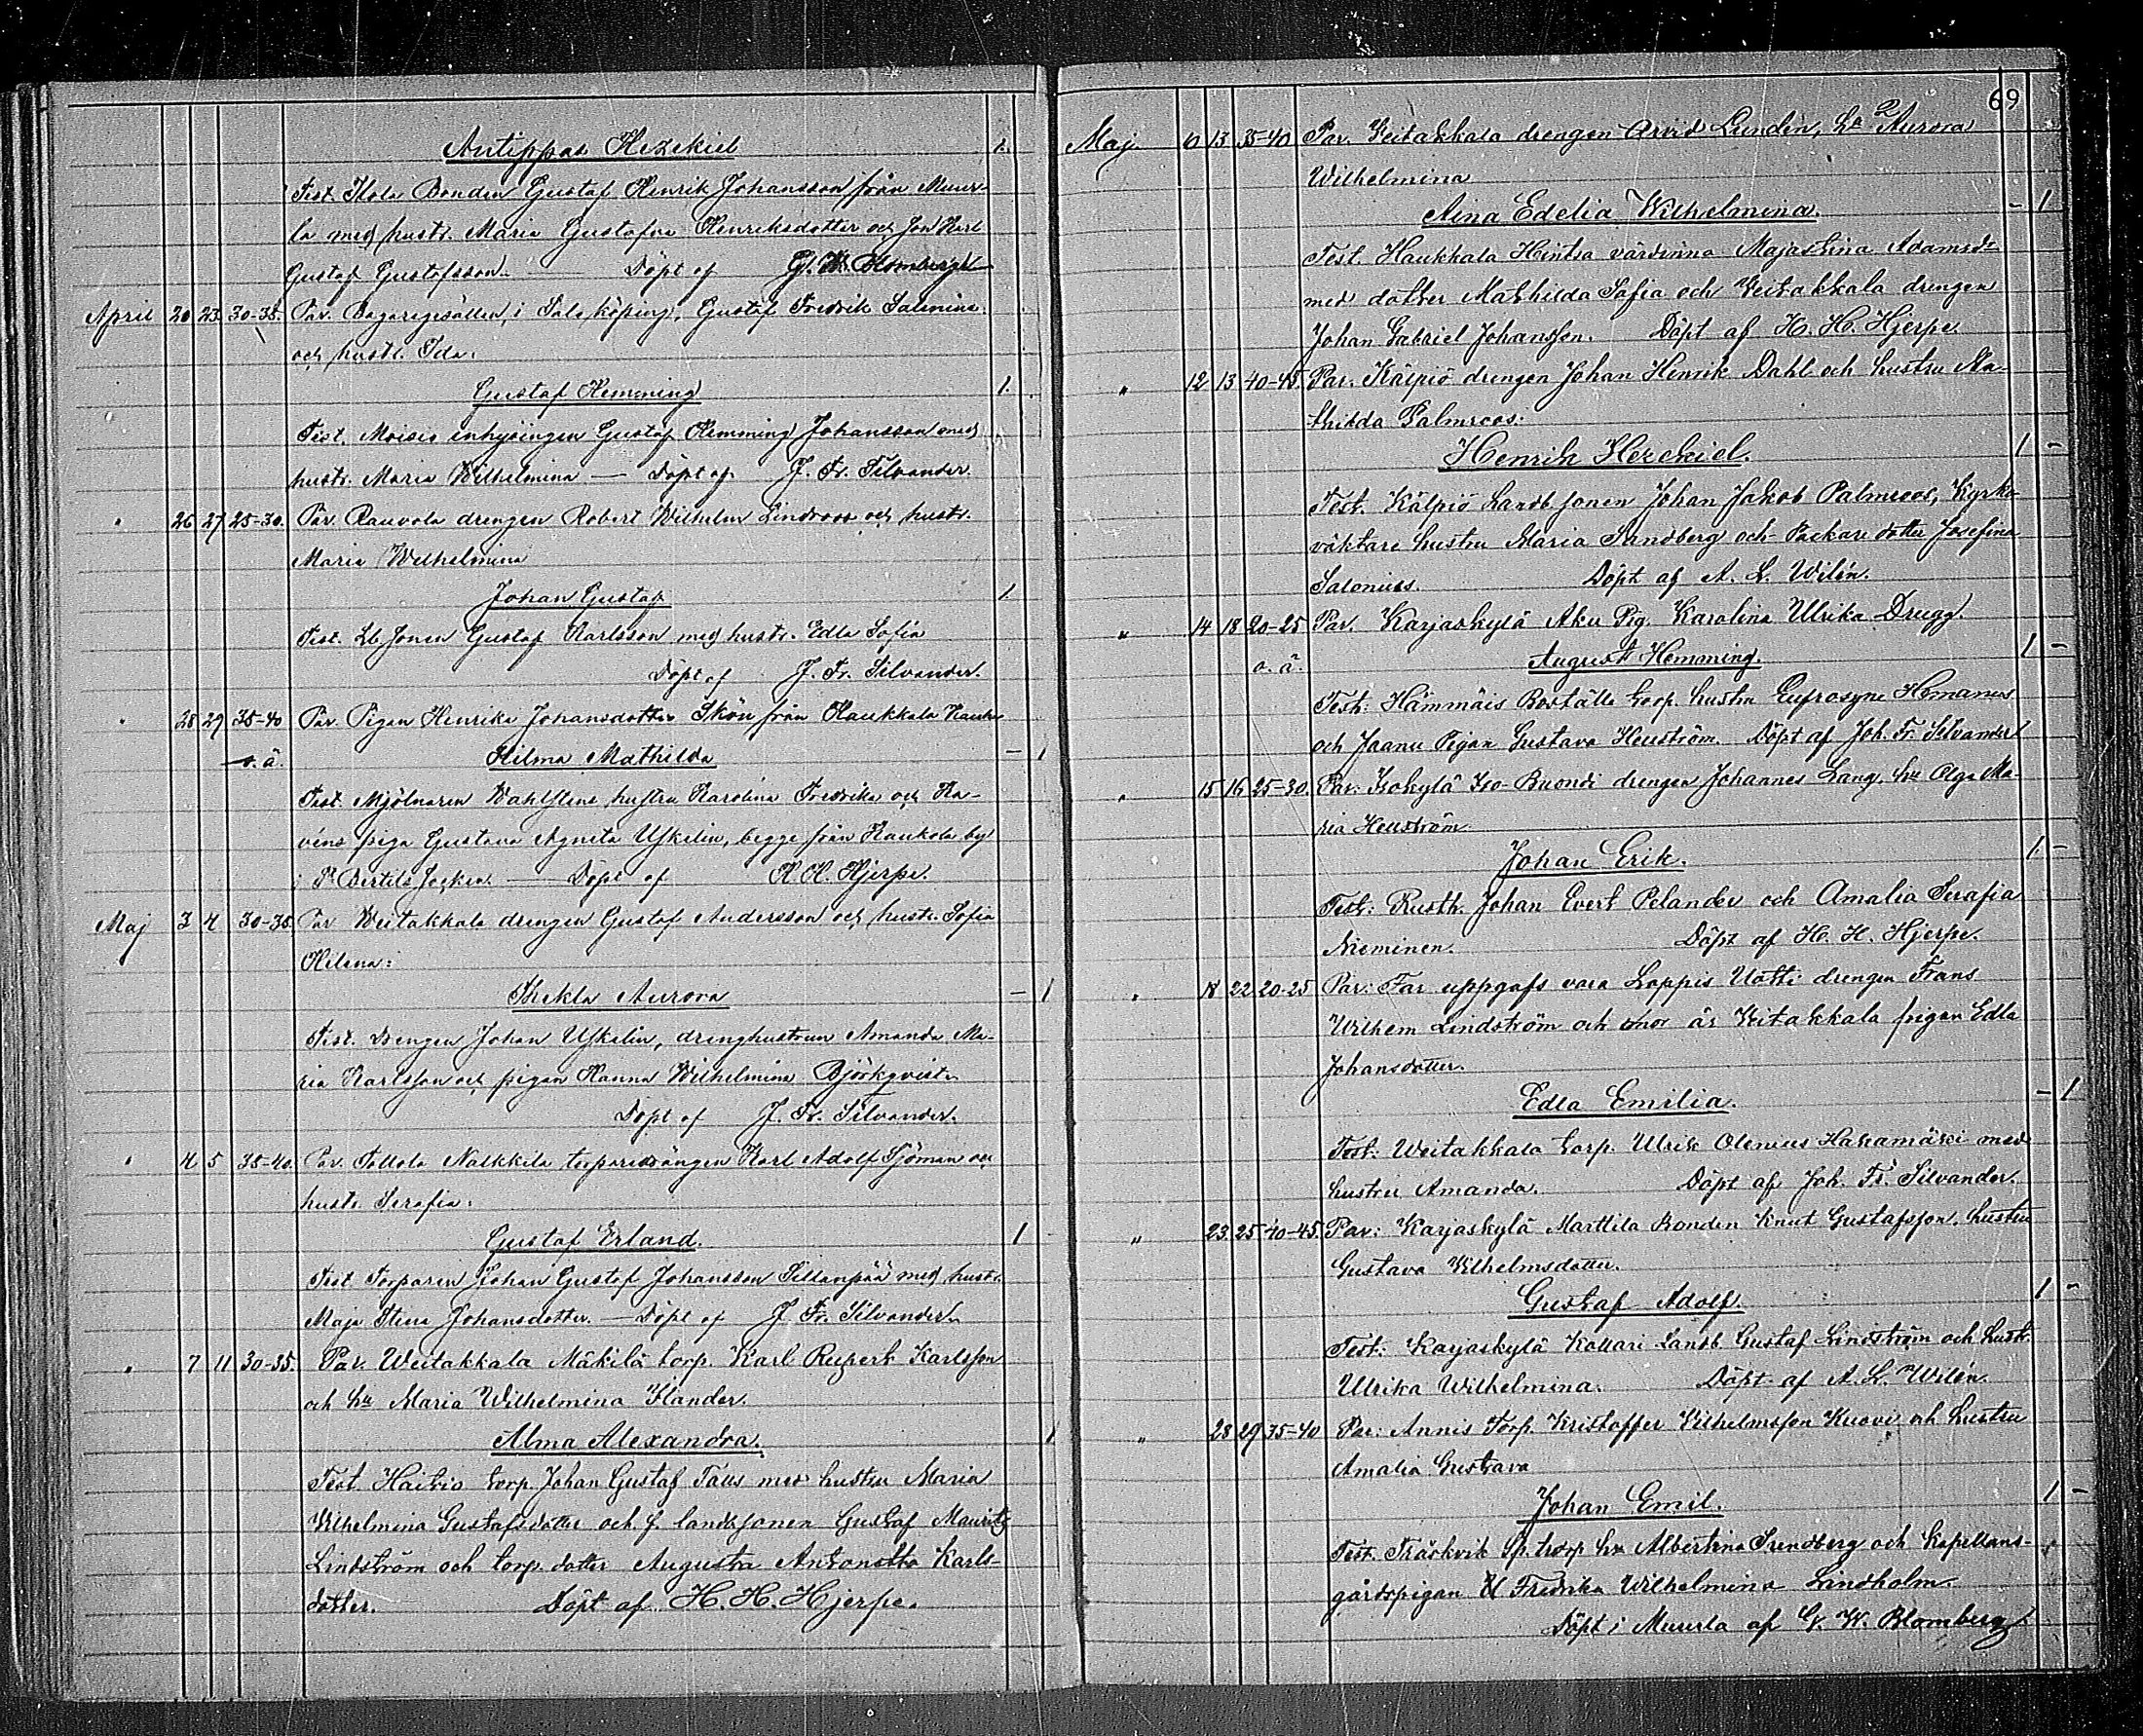 Antippas Hezekiel 1.
Test. Isola Bonden Gustaf Henrik Johansson från Muur-
la med hustr. Maria Gustafva Henriksdotter och Son Karl
Gustaf Gustafsson. — Döpt af G. W. Blomberg
April 20 23 30-35. Par. Bagaregesällen, i Salo köping, Gustaf Fredrik Salenius
och hustr. Ida.
Gustaf Hemming 1.
Test. Moisio inhysingen Gustaf Hemming Johansson med
hustr. Maria Wilhelmina — Döpt af J. Fr. Silvander.
" 26 27 25-30. Par. Rauvola drengen Robert Wilhelm Lindroos och hustr.
Maria Wilhelmina
Johan Gustaf 1.
Test. Lb. Sonen Gustaf Karlsson med hustr. Edla Sofia
Döpt af J. Fr. Silvander.
" 28 29 35-40 Par. Pigan Henrika Johansdotter Skön från Haukkala
o. ä. Hilma Mathilda — 1
Test. Mjölnaren Wahlstens hustru Karolina Fredrika och
piga Gustava Agneta Uskelin, begge från Haukola by
i St Bertils Socken. — Döpt af H. H. Hjerpe.
Maj 3 4 30-35. Par Weitakkala drengen Gustaf Andersson och hustr. Sofia
Helena:
Thekla Aurora — 1
Test. Drengen Johan Uskelin, dränghustrun Amanda Ma-
ria Karlsson och pigan Hanna Wilhelmina Björkqvist.
Döpt af J. Fr. Silvander.
" 4 5 35-40. Par. Tottola Nalkkila torparedrängen Karl Adolf Sjöman och
hustr. Serafia:
Gustaf Erland. 1
Test Torparen Johan Gustaf Johansson Sillanpää med hustr.
Maja Stina Johansdotter. — Döpt af J. Fr. Silvander.
" 7 11 30-35. Par. Weitakkala Mäkilä torp. Karl Rupert Karlsson
och hu Maria Wilhelmina Klander.
Alma Alexandra. 1
Test. Haitio torp. Johan Gustaf Talus med hustru Maria
Vilhelmina Gustafsdotter och f. landbsonen Gustaf Mauritz
Lindström och torp. dotter Augusta Antonetta Karls-
dotter. Döpt af H. H. Hjerpe.
69
Maj 10 13 35-40 Par. Veitakkala drengen Arvid Lundén, hu Aurora
Wilhelmina
Aina Edelia Wilhelmina. — 1
Test. Haukkala Hintsa värdinna Maja Lina Adamsdr
med dotter Mathilda Sofia och Veitakkala drengen
Johan Gabriel Johansson. Döpt af H. H. Hjerpe.
" 12 13 40-45 Par. Kälpiö drengen Johan Henrik Dahl och hustru Ma-
thilda Palmroos:
Henrik Hezekiel. 1 —
Test. Kälpiö Landb. sonen Johan Jakob Palmroos, Kyrko-
väktare hustru Maria Sandberg och Packare dotter Josefina
Salonius. Döpt af A. L. Wilén.
" 14 18 20-25 Par. Karjaskylä Aku Pig. Karolina Ulrika Drugg.
o. ä. August Hemming. 1 —
Test: Hämmäis Boställe torp. hustru Eufrosyne Homanus
och Jaanu Pigan Gustava Henström. Döpt af Joh. Fr. Silvander
" 15 16 25-30. Par: Isokylä Iso-Buondi drengen Johannes Lang, hu Olga Ma-
ria Hellström.
Johan Erik. 1 —
Test: Rusth. Johan Evert Pelander och Amalia Serafia
Nieminen. Döpt af H. H. Hjerpe.
" 18 22 20-25 Par: Far uppgafs vara Loppis Uotti drengen Frans
Wilhem Lindström och mor är Veitakkala pigan Edla
Johansdotter.
Edla Emilia. — 1
Test: Weitakkala torp. Ulrik Olenius Hakamäki med
hustru Amanda. Döpt af Joh. Fr. Silvander.
" 23 25 40-45. Par: Karjaskylä Marttila Bonden Knut Gustafsson, hustru
Gustava Vilhelmsdotter.
Gustaf Adolf. 1 —
Test: Karjaskylä Kollari Landb. Gustaf Lindström och hustr.
Ulrika Wilhelmina. Döpt af A. L. Wilén.
" 28 29 35-40 Par: Annis Torp. Kristoffer Vilhelmsson Kuovi och hustru
Amalia Gustava
Johan Emil. 1 —
Test. Träskvik torp hu Albertina Sundberg och Kapellans-
gårdspigan Fredrika Wilhelmina Lindholm.
Döpt i Muurla af G. W. Blomberg